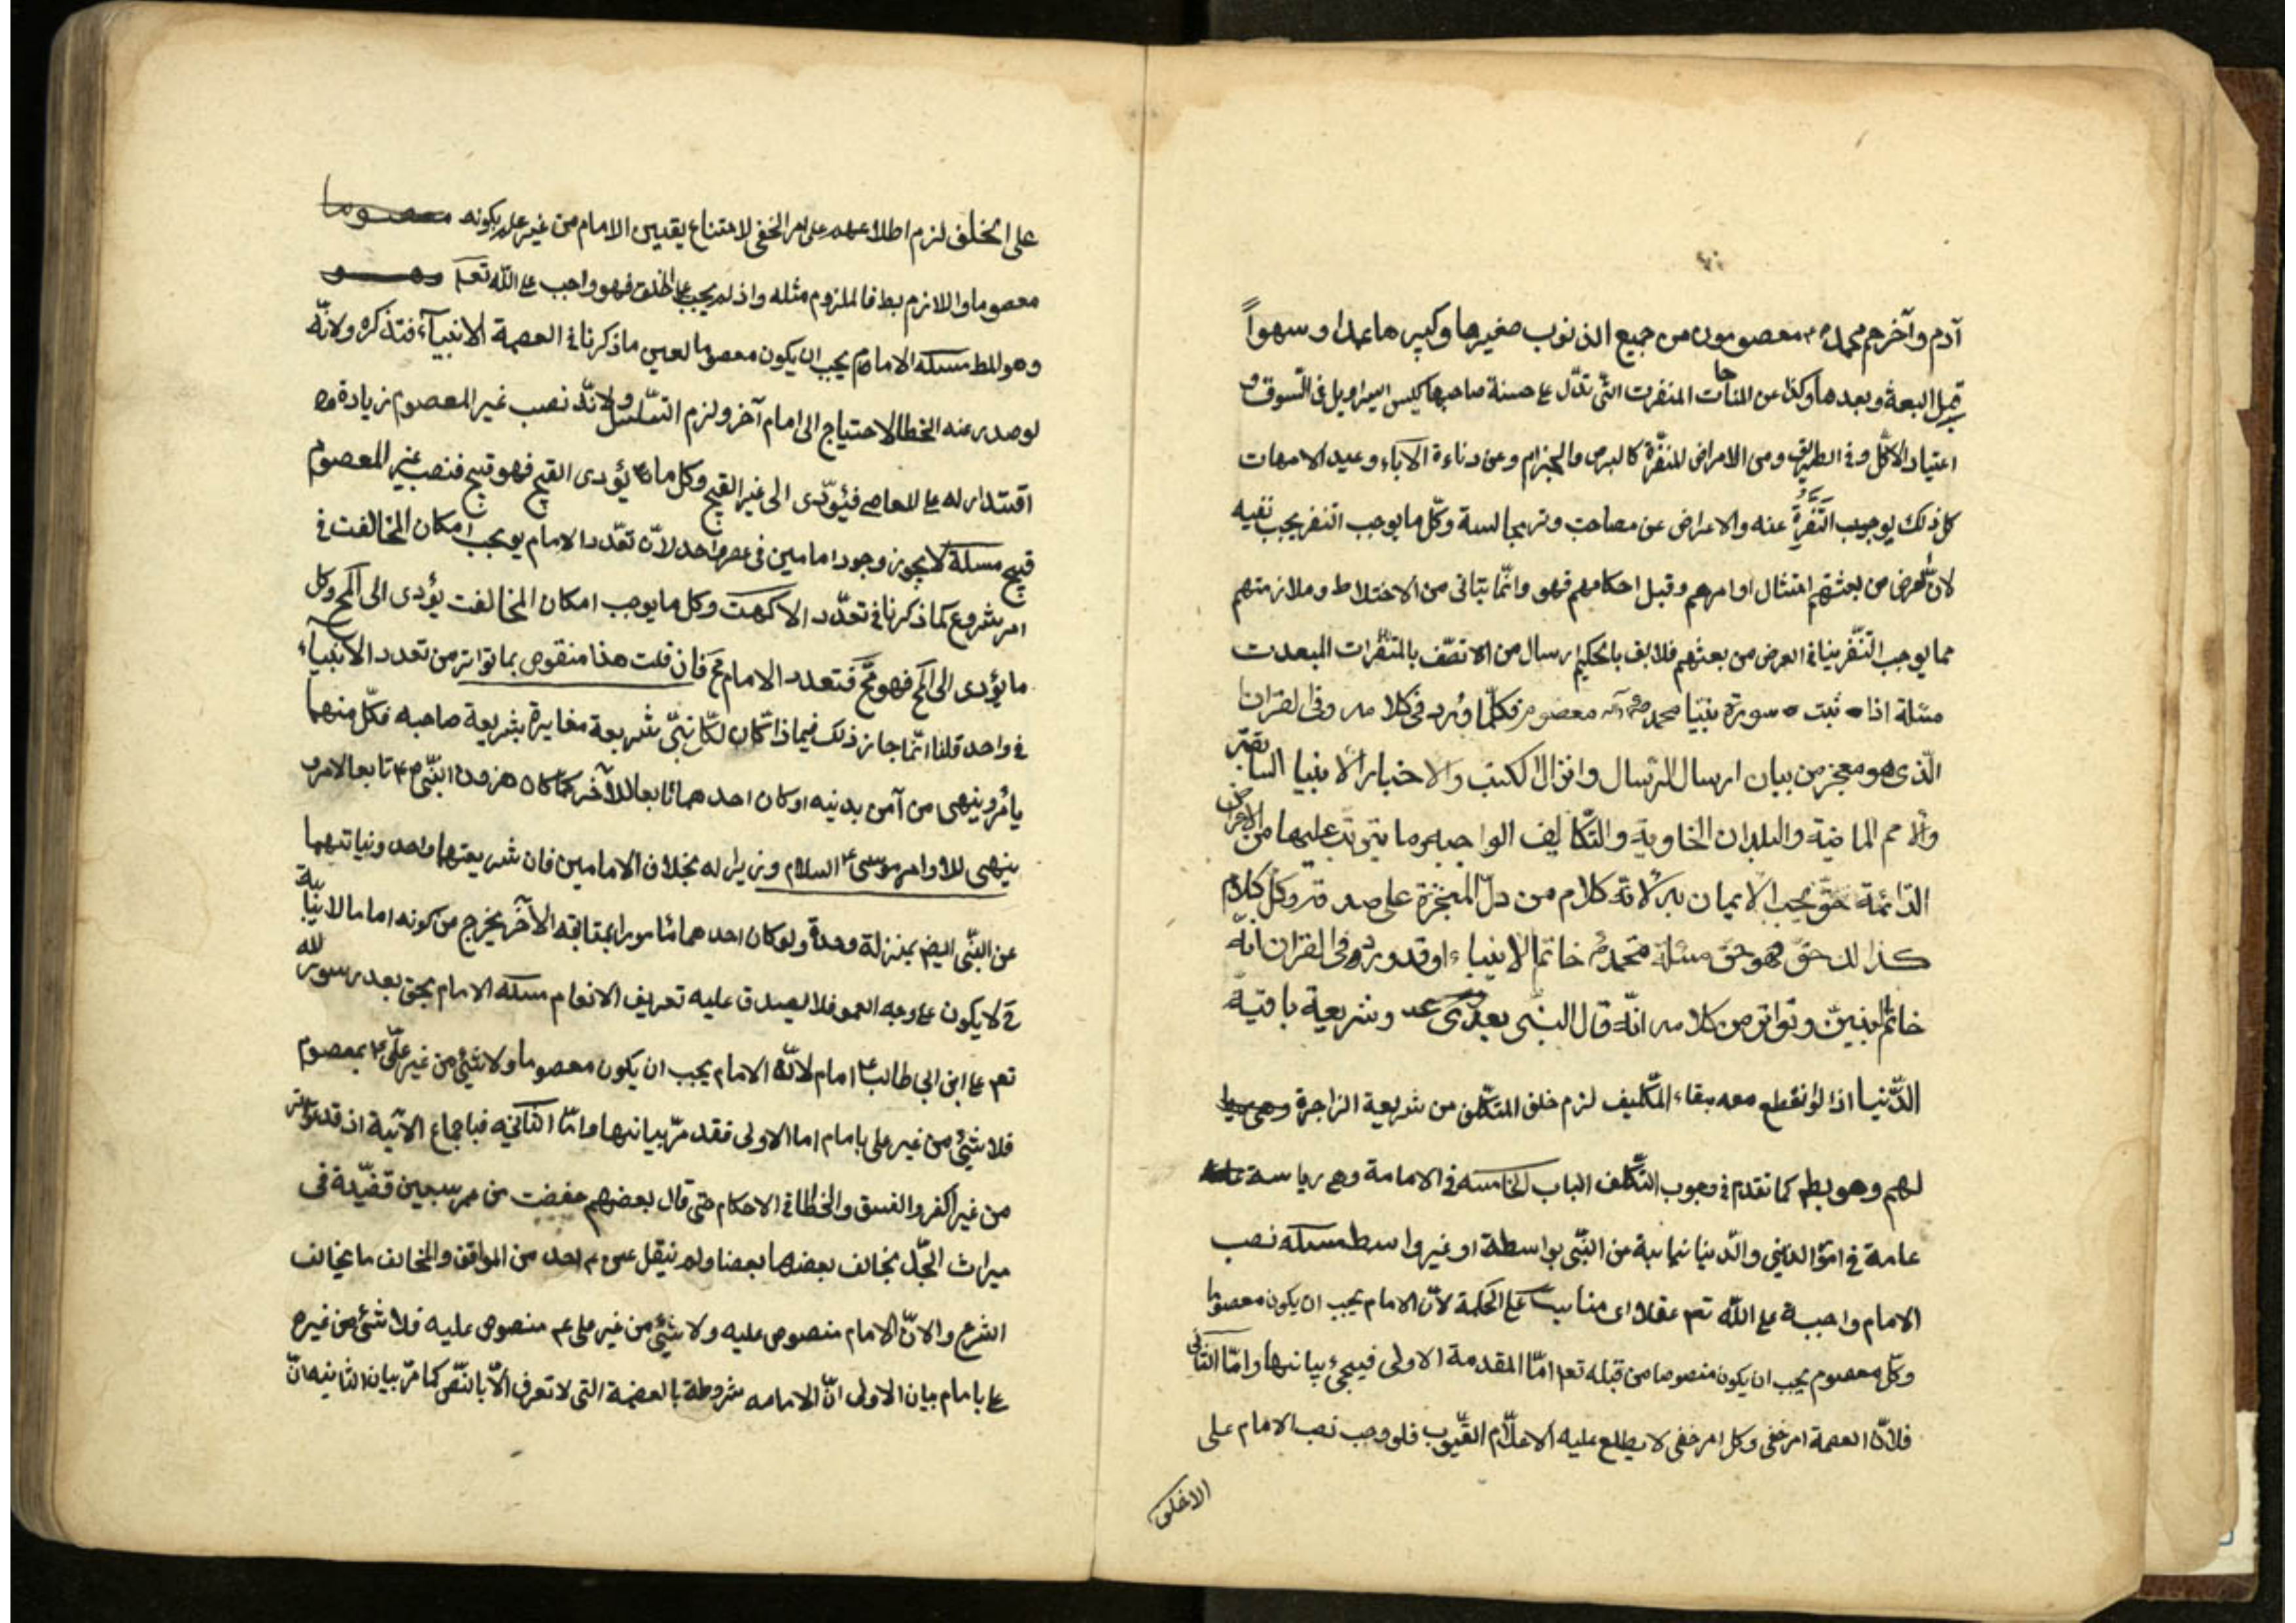 آدم وآخرهم محمد ص معصومون من جميع الذنوب صغيرها وكبيرها عمدا وسهواً
قبل البعثة وبعدها وكذا عن المنفرت التّى تدّل ع حسنة صاحبها كلبس السراويل فى السوق و
اعتياد الاكل وفى الطريق ومن الامراض المنفّرة كالبرص والجزام وعن دناءة الآباء وعيد الامهات
كل ذلك يوجب التَّنَفُّرة عنه والاعراض عن مصاحبت وترمجالسة وكلّ ما يوجب التنفر يجب نفيه
لانّ الغرض من بعثتهم امتثال اوامرهم وقبل احكامهم فهو وانّما يتاتى من الاختلاط وملازمتهم
مما يوجب التنّفر ينافى الغرض من بعثتهم فلا يف بالحكيم ارسال من الاتصّف بالمتنفّرات المبعدت
مسئلة اذا ثبت سورة نبيّنا محمد معصوم فكلّما ورد فى كلامه وفى القران
الّذى هو معجز من بيان ارسال الرّسال وانزال الكتب والاخبار الانبيا السابقتر
والامم الماضية والبلدان الخاوية والتكاليف الواجبه وما يترتب عليها من الاعراض
الدّائمة حقّ يجب الايمان به لانّه كلام من دلّ المنجّزة على صدقه وكل كلام
كذلك حقّ فهو حق مسئلة محمد خاتم الانبياء او قد ورد فى القران انّه
خاتم النبيّن وتواتر من كلامه انّه قال النبّى بعدى وشريعة باقيّة
الدّنيا اذا لو انقطع معه بقاء التّكليف لزم خلق المتكّلف من شريعة الزاجرة
لهم وهو بط كما تقدم فى وجوب التكلّف الباب الخامسه فى الامامة وهى رياسة
عامة فى امور الدينى والدّنيا نيابة عن النّبّى بواسطة او غير واسط مسئله نصب
الامام واجبة على اللّه تعم عقلا اى مناسب على الحكمة لانّ الامام يجب ان يكون معصوما
وكلّ معصوم يجب ان يكون منصوصا من قبله تعم امّا المقدمة الاولى فيجىء بيانها وامّا الثّانى
فلانّ العصمة امر خفى وكل امر خفى لا يطلع عليه الاعلاّم الغيّوب فلو وجب نصب الامام على
الاخلق
على الخلف لزم اطلاعهم على امر الخفى لامتناع يقدس الامام من غير علم بكونه معصوما
معصوما واللازم بط فالملزوم مثله واذ لم يجب على الخلق فهو واجب ع اللّه تعم وهو
وهو المط مسئله الامام يجب ان يكون معصوما لعين ما ذكرنا فى العصمة الانبيآء فتذكره ولانّه
لو صدر عنه الخطا لاحتياج الى امام آخر ولزم التسّلسل ولانّه نصب غير المعصوم زيادة
اقتدار له ع المعاصى فيؤدّى الى غير القبيح وكل ما يؤدى القبيح فهو قبيح فنصب غير المعصوم
قبيح مسئلة لا يجوز وجود امامين فى عصر واحد لانّ تعّدد الامام يوجب امكان المخالفت فى
امر مشروع كما ذكرنا فى تعدّد الاكهت وكل ما يوجب امكان المخالفت يؤدى الى المح وكل
ما يؤدى الى المح فهو محّ فتعدد الامام مح فان قلت هذا منقوص بما تواتر من تعدد الانبيآء
فى واحد قلنا انّما جاز ذلك فيما اذا كان لكّل نبّى شريعة مغايرة بشريعة صاحبه فكلّ منهما
يامر وينهى من آمن بدينه او كان احدهما تابعا للآخر كما كان هرون النّبى ع تابعا لامر و
ينهى للاوامر موسى ع السلام وزير له بخلاف الامامين فان شريعتها واحد ونيابتهما
عن النبّى ايضا بمنزلة وحدة ولو كان احدهما مامورا بمتابقه الآخر يخرج من كونه اماما لانيّابة
ح لا يكون ع وجه العمو فلا يصدق عليه تعريف الانعام مسئله الامام بحق بعد رسول للّه
تعم ع ابن ابى طالب ع امام لانّه الامام يجب ان يكون معصوما ولا شئ من غير علّى ع بمعصوم
فلا شئ من غير على بامام اما الاولى فقد مرّ بيانها وامّا الثّانيه فباجماع الآتية اذ قد تواتر
من غير الكفر والفسق والخطا فى الاحكام حتى قال بعضهم حفضت من عمر سبعين قضّية فى
ميراث الجّد يخالف بعضها بعضا ولم ينقل عن ع احد من الموافق والمخالف ما يخالف
الشرع والانّ الامام منصوص عليه ولا شئ من غير على عم منصوص عليه فلا شئ من غيره
ع بامام بيان الاولى انّ الامامه مشروطة بالعصمة التى لا تعرف الاّ بالنّص كما مرّ بيان الثانيه انّ